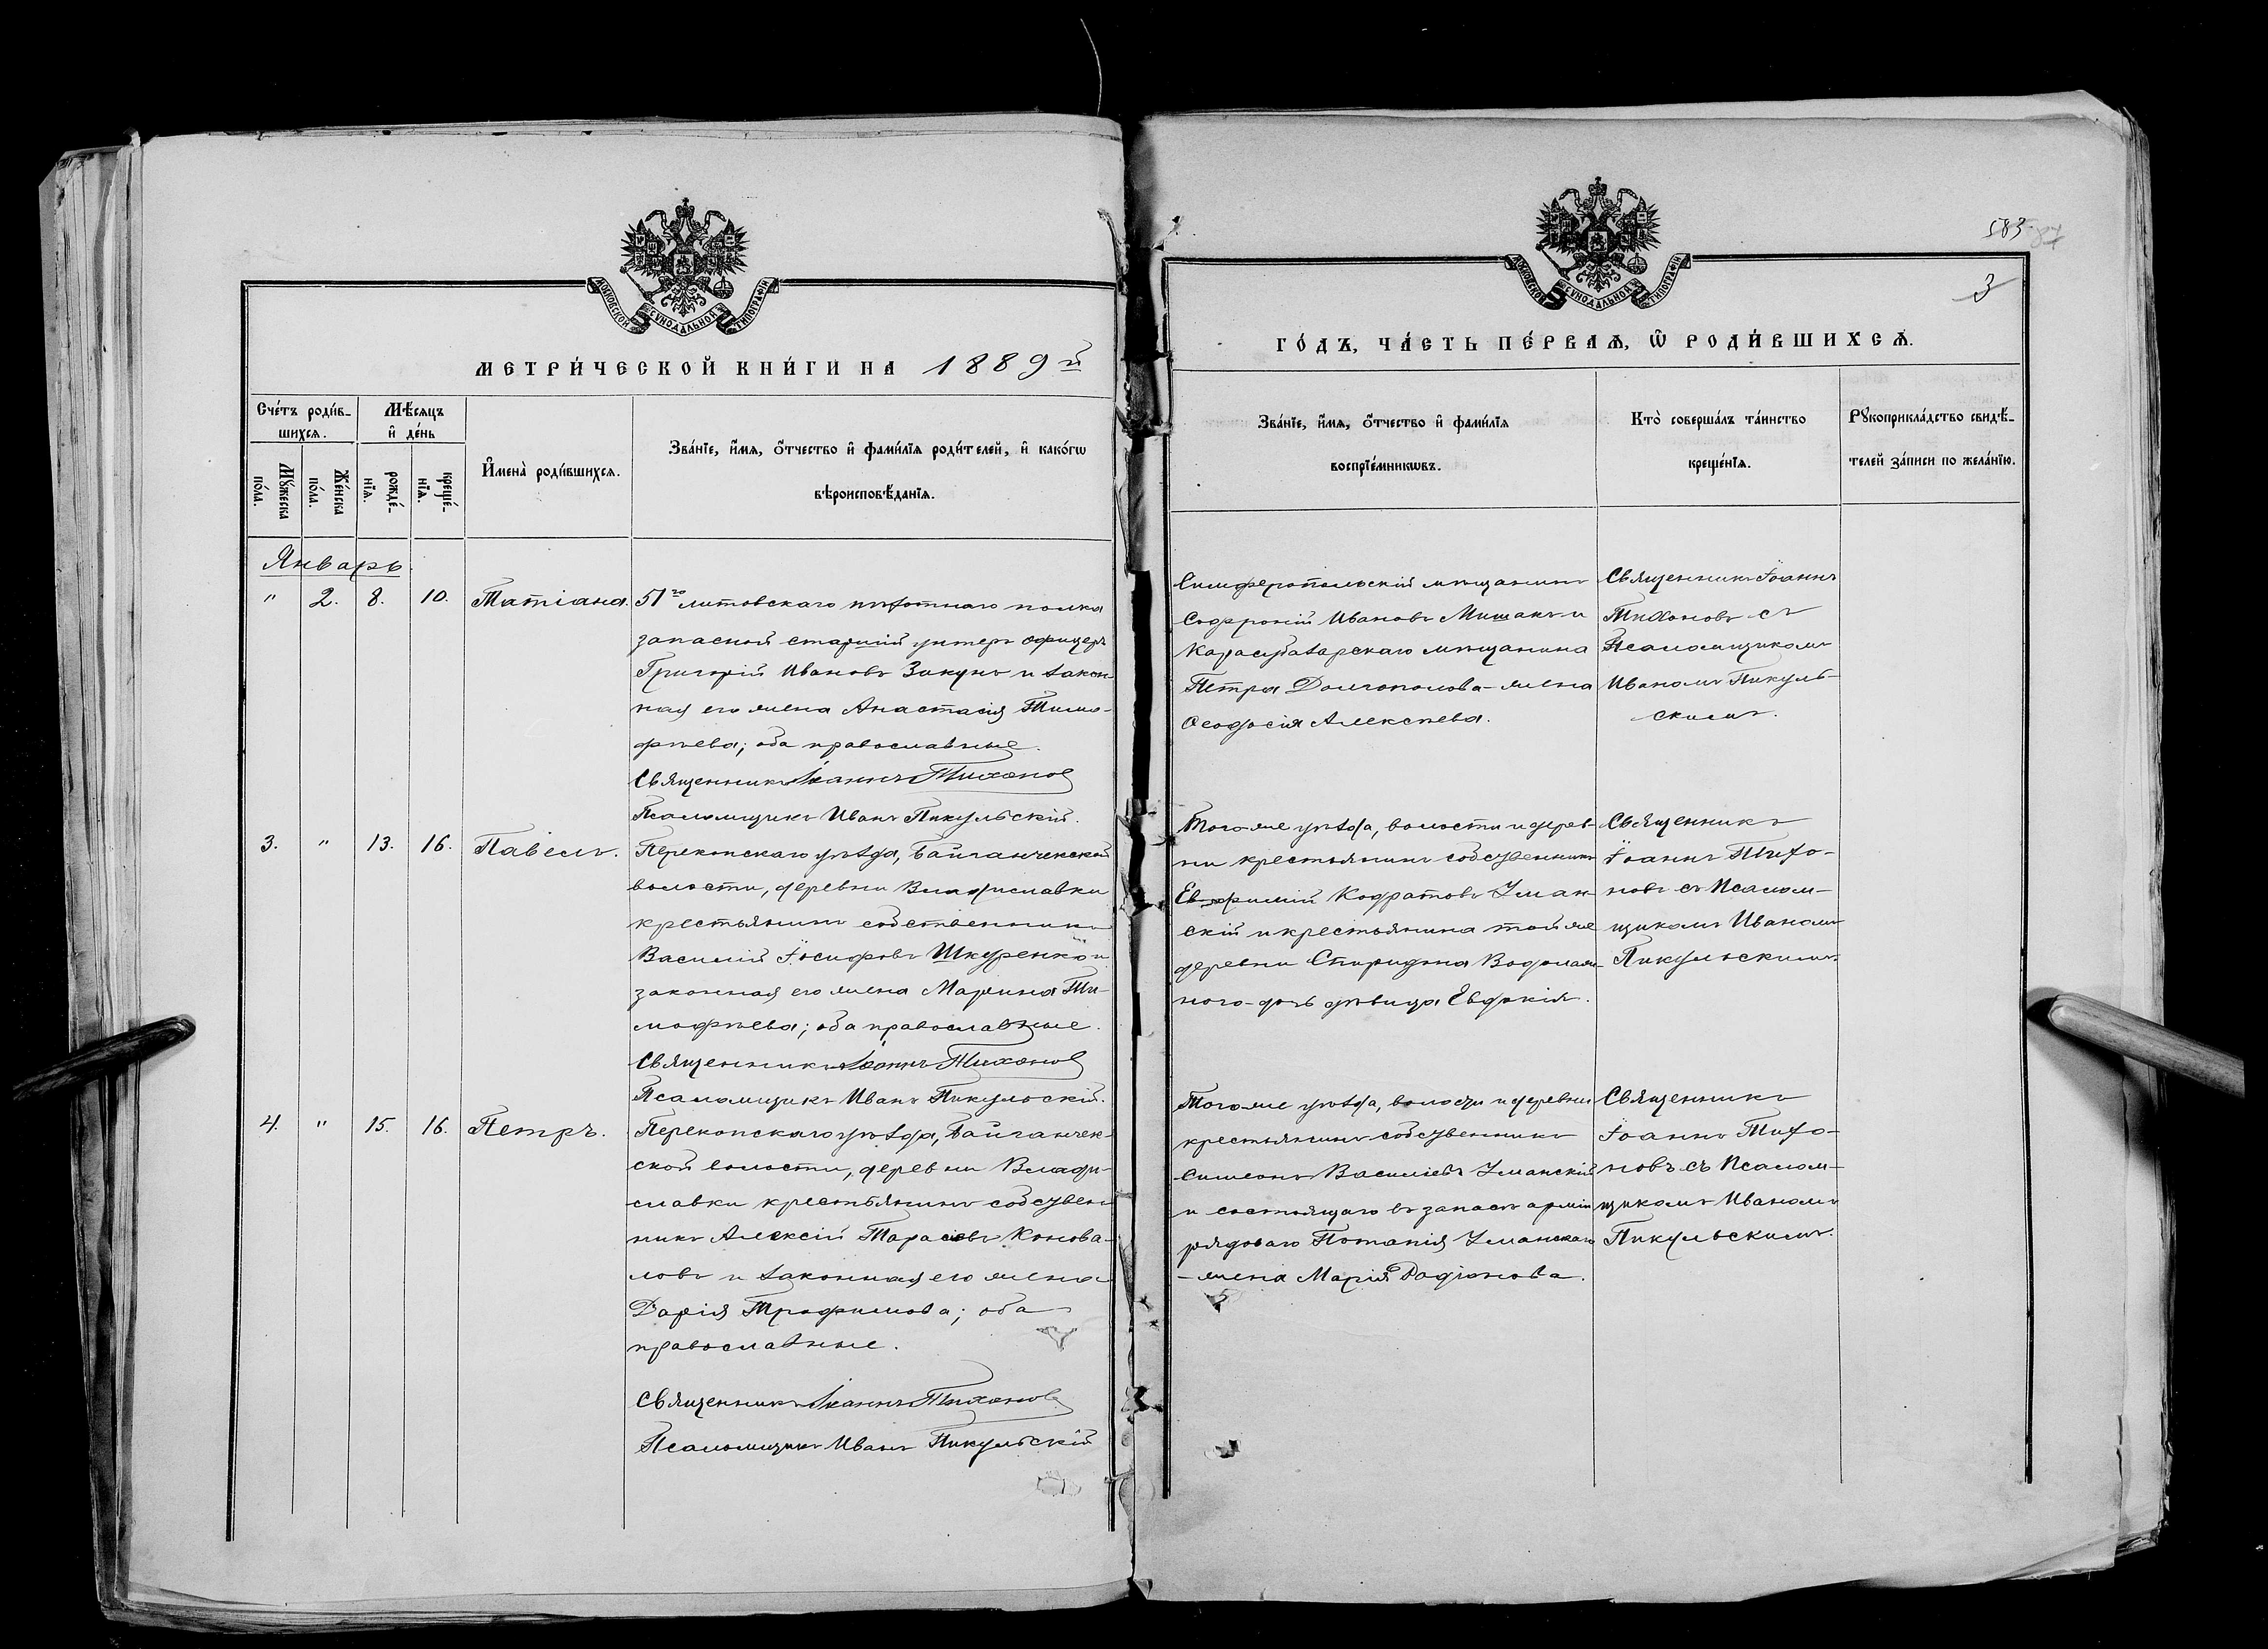 МОСКОВСКОЙ СѴНОДАЛЬНОЙ ТИПОГРАФІИ
МЕТРИ́ЧЕСКОЙ КНИ́ГИ НА 1889й
Сче́тъ роди́в-
шихсѧ.
Мѣ́сѧцъ
и҆ де́нь
Мꙋ́жеска
по́ла.
Же́нска
по́ла.
рожде́-
нїѧ.
креще́-
нїѧ.
И҆мена̀ роди́вшихсѧ.
Зва́нїе, и҆́мѧ, ѻ҆́тчество и҆ фами́лїѧ роди́телей, и҆ како́гѡ
вѣроисповѣ́данїѧ.
Январь.
" 2. 8. 10. Татіана.
51го литовскаго пѣхотнаго полка
запасной старшій унтеръ офицеръ
Григорій Ивановъ Закунъ и закон-
ная его жена Анастасія Тимо-
фѣева; оба православные.
Священникъ Іоаннъ Тихонов
Псаломщикъ Иванъ Пикульскій.
3. " 13. 16. Павелъ.
Перекопскаго уѣзда, Байганчекской
волости, деревни Владиславки
крестьянинъ собственникъ
Василій Іосифовъ Шкуренко и
законная его жена Марина Ти-
мофѣева; оба православные.
Священникъ Іоаннъ Тихонов
Псаломщикъ Иванъ Пикульскій.
4. " 15. 16. Петръ.
Перекопскаго уѣзда, Байганчек-
ской волости, деревни Влади-
славки крестьянинъ собствен-
никъ Алексій Тарасіевъ Конова-
ловъ и законная его жена
Дарія Трофимова; оба
православные.
Священникъ Іоаннъ Тихонов
Псаломщикъ Иванъ Пикульскій
583
3
МОСКОВСКОЙ СѴНОДАЛЬНОЙ ТИПОГРАФІИ
ГО́ДЪ, ЧА́СТЬ ПЕ́РВАѦ, Ѡ҆ РОДИ́ВШИХСѦ.
Зва́нїе, и҆́мѧ, ѻ҆́тчество и҆ фами́лїѧ
воспрїе́мникѡвъ.
Кто̀ соверша́лъ та́инство
креще́нїѧ.
Рꙋкоприкла́дство свидѣ́-
телей за́писи по жела́нїю.
Симферопольскій мѣщанинъ
Софроній Ивановъ Мишакъ и
Карасубазарскаго мѣщанина
Петра Долгополова - жена
Ѳеодосія Алексѣева.
Священникъ Іоаннъ
Тихоновъ съ
Псаломщикомъ
Иваномъ Пикуль-
скимъ.
Того же уѣзда, волости и дерев-
ни крестьянинъ собственникъ
Евфимій Кодратовъ Уман-
скій и крестьянина той же
деревни Спиридона Водолаж-
ного - дочь дѣвица Евдокія.
Священникъ
Іоаннъ Тихо-
новъ съ Псалом-
щикомъ Иваномъ
Пикульскимъ.
Того же уѣзда, волости и деревни
крестьянинъ собственникъ
Симеонъ Василіевъ Уманскій
и состоящаго въ запасѣ арміи
рядоваго Потапія Уманскаго
- жена Марія Родіонова.
Священникъ
Іоаннъ Тихо-
новъ съ Псалом-
щикомъ Иваномъ
Пикульскимъ.